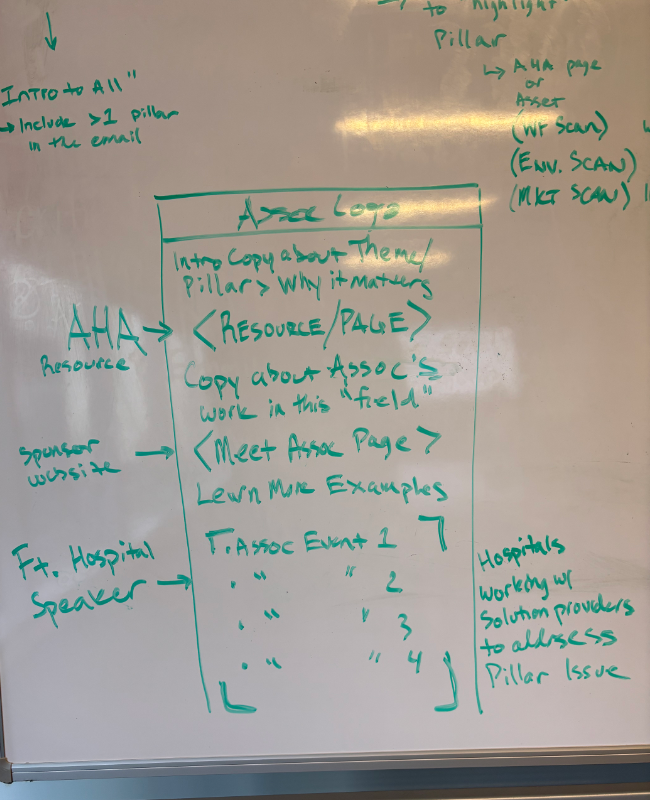 to "highlight"
Pillar
↳ AHA page
or
Asset
(WF Scan)
(ENV. SCAN)
(MKT SCAN)
Intro to All"
→ Include >1 pillar
in the email
Assoc Logo
Intro Copy about Theme/
Pillar > Why it matters
<RESOURCE/PAGE>
Copy about Assoc's
work in this "field"
<Meet Assoc Page>
Learn More Examples
Assoc Event 1
• " " 2
• " " 3
• " " 4
AHA →
Resource
Sponsor →
website
Ft. Hospital
Speaker →
Hospitals
working w/
Solution providers
to addresss
Pillar Issue